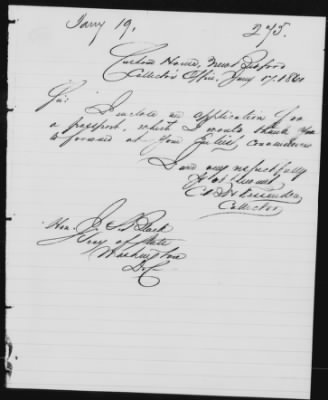 Jany 19.
275.
Custom House, New Bedford
Collector's Office, Jany 17. 1861
Sir:
I enclose an application for
a passport, which I would thank you
to forward at your earliest convenience
I am very respectfully
Yr Obt Servant
Collector
Hon. J. S. Black
Secy of State
Washington
D.C.